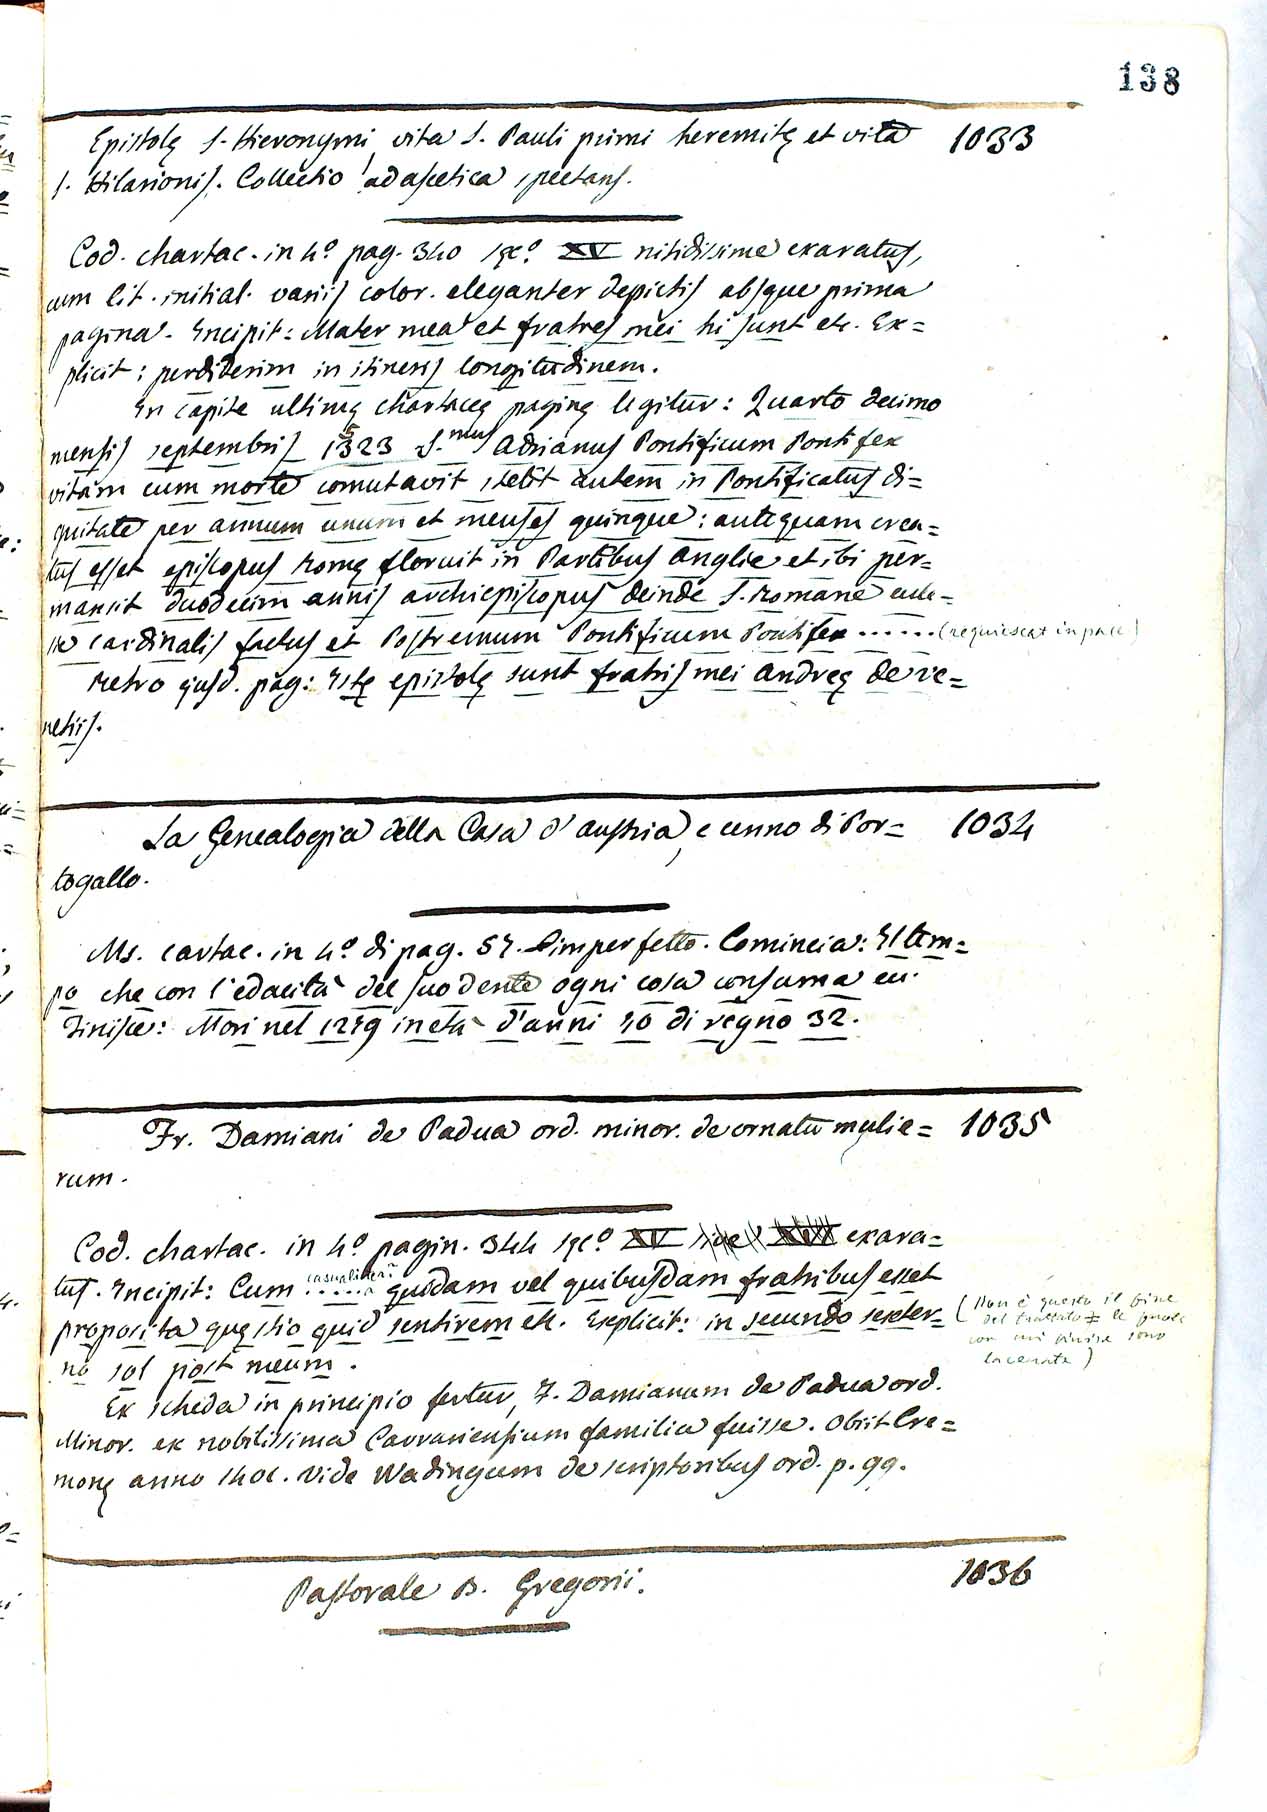 138
Epistolę S. Hieronymi, vita S. Pauli primi heremitę et vita 1033
S. Hilarionis. Collectio ad ascetica spectans.
Cod. chartac. in 4º pag. 340 sęc.º XV nitidissime exaratus,
cum lit. initial. variis color. eleganter depictis absque prima
pagina. Incipit: Mater mea et fratres mei hi sunt etc. Ex=
plicit: perdiderim in itineris longitudinem.
In capite ultimę chartaceę paginę legitur: Quarto decimo
mensis septembris 1523 S.mus Adrianus Pontificum Pontifex
vitam cum morte comutavit stetit autem in Pontificatus di=
gnitate per annum unum et menses quinque: antequam crea=
tus esset episcopus Romę floruit in Partibus Anglie et ibi per=
mansit duodecim annis archiepiscopus deinde S. Romane eccle=
sie cardinalis factus et Postremum Pontificum Pontifex ...... (requiescat in pace)
Retro ejusd. pag: Istę epistolę sunt fratris mei Andreę de Ve=
netiis.
La Genealogia della Casa d'Austria, e cenno di Por= 1034
togallo.
Ms. cartac. in 4º di pag. 57. imperfetto. Comincia: Il tem=
po che con l'edacità del suo dente ogni cosa consuma ec.
Finisce: Morì nel 1279 in età d'anni 70 di regno 32.
Fr. Damiani de Padua ord. minor. de ornatu mulie= 1035
rum.
Cod. chartac. in 4º pagin. 344 sęc.º XV sive XVI exara=
tus. Incipit: Cum ...... quodam vel quibusdam fratribus esset
proposita quęstio quid sentirem etc. Explicit: in secundo sexter=
no sol post meum.
(Non è questo il fine
del trattato le quali
con cui finisce sono
lacerate)
Ex scheda in principio fertur, F. Damianum de Padua ord.
Minor. ex nobilissima Carrariensium familia fuisse. Obiit Cre=
monę anno 1401. Vide Wadingum de scriptoribus ord. p. 99.
Pastorale B. Gregorii. 1036